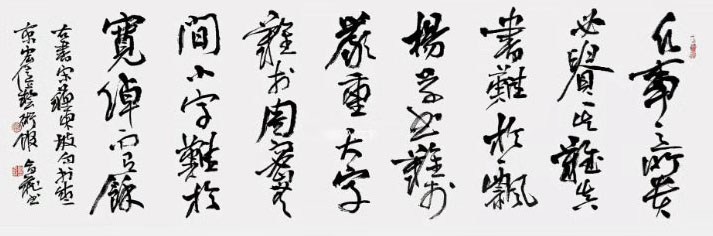 凡事之所貴
必貴其難真
書難於飄
揚草書難於
嚴重大字
難於周密無
間小字難於
寬綽而有餘
書宋蘇東坡句於
京藝術館